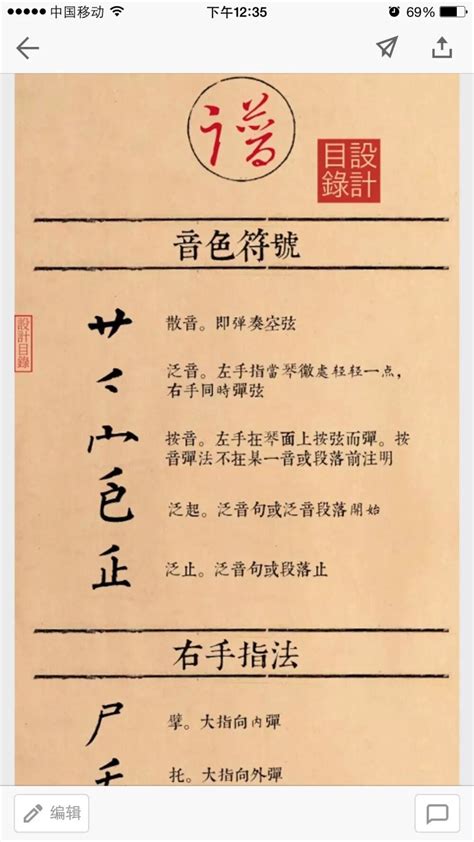 中国移动
下午12:35
69%
谱
設計
目錄
音色符號
設計目錄
散音。即弹奏空弦
泛音。左手指當琴徽處轻轻一点，
右手同時彈弦
按音。左手在琴面上按弦而彈。按
音彈法不在某一音或段落前注明
泛起。泛音句或泛音段落開始
泛止。泛音句或段落止
右手指法
尸
擘。大指向内彈
托。大指向外彈
编辑